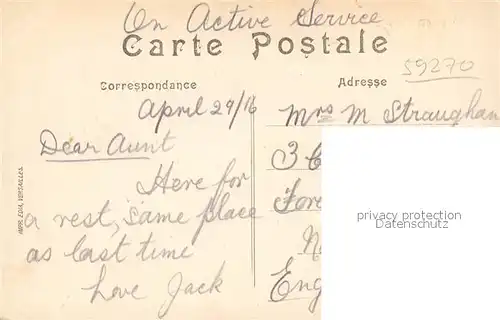 On Active Service
Carte Postale
59270
Correspondance
Adresse
April 29/16
Dear Aunt
Here for
a rest, same place
as last time
Love Jack
Mrs M Straughan
3
Eng
IMPR. EDIA, VERSAILLES.
privacy protection
Datenschutz